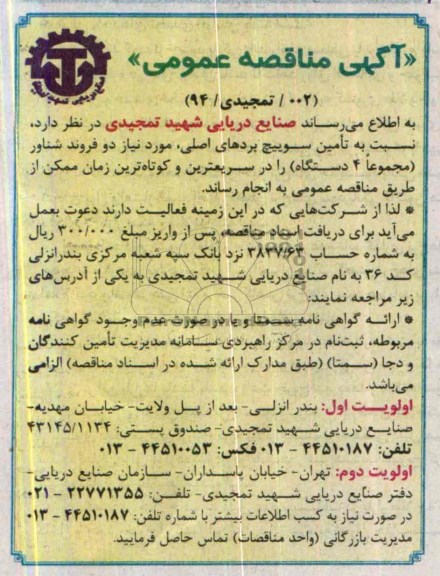 «آگهی مناقصه عمومی»
(۰۰۲ / تمجیدی/ ۹۴)
به اطلاع می‌رساند صنایع دریایی شهید تمجیدی در نظر دارد،
نسبت به تأمین سوییچ بردهای اصلی، مورد نیاز دو فروند شناور
(مجموعاً ۴ دستگاه) را در سریعترین و کوتاه‌ترین زمان ممکن از
طریق مناقصه عمومی به انجام رساند.
* لذا از شرکت‌هایی که در این زمینه فعالیت دارند دعوت بعمل
می‌آید برای دریافت اسناد مناقصه، پس از واریز مبلغ ۳۰۰/۰۰۰ ریال
به شماره حساب ۳۸۳۷/۶۳ نزد بانک سپه شعبه مرکزی بندرانزلی
کد ۳۶ به نام صنایع دریایی شهید تمجیدی به یکی از آدرس‌های
زیر مراجعه نمایند:
* ارائه گواهی نامه سمتا و یا در صورت عدم وجود گواهی نامه
مربوطه، ثبت‌نام در مرکز راهبردی سامانه مدیریت تأمین کنندگان
و دجا (سمتا) (طبق مدارک ارائه شده در اسناد مناقصه) الزامی
می‌باشد.
اولویت اول: بندر انزلی- بعد از پل ولایت- خیابان مهدیه-
صنایع دریایی شهید تمجیدی- صندوق پستی: ۴۳۱۴۵/۱۱۳۴
تلفن: ۴۴۵۱۰۱۸۷ - ۰۱۳ فکس: ۴۴۵۱۰۰۵۳ - ۰۱۳
اولویت دوم: تهران- خیابان پاسداران- سازمان صنایع دریایی-
دفتر صنایع دریایی شهید تمجیدی- تلفن: ۲۲۷۷۱۳۵۵ - ۰۲۱
در صورت نیاز به کسب اطلاعات بیشتر با شماره تلفن: ۴۴۵۱۰۱۸۷ - ۰۱۳
مدیریت بازرگانی (واحد مناقصات) تماس حاصل فرمایید.